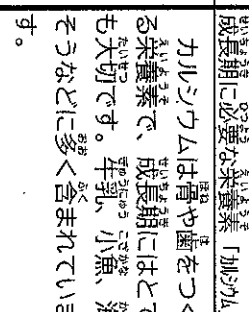 成長期に必要な栄養素「カルシウム
カルシウムは骨や歯をつく
る栄養素で、成長期にはとて
も大切です。牛乳、小魚、海
そうなどに多く含まれていま
す。